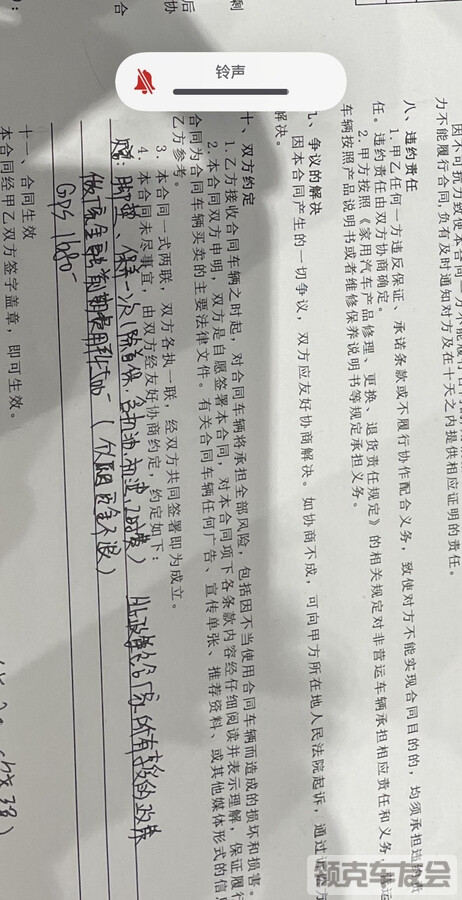 剩
后
协
合
铃声
因不可抗力致使本合同一方不能履行
力不能履行合同,负有及时通知对方及在十天之内提供相应证明的责任。
八、违约责任
1. 甲乙任何一方违反保证、承诺条款或不履行协作配合义务，致使对方不能实现合同目的的，均须承担违约责
任。违约责任由双方协商确定。
2. 甲方按照《家用汽车产品修理、更换、退货责任规定》的相关规定对非营运车辆承担相应责任和义务，营运
车辆按照产品说明书或者维修保养说明书等规定承担义务。
九、争议的解决
因本合同产生的一切争议，双方应友好协商解决。如协商不成，可向甲方所在地人民法院起诉，通过诉讼方
解决。
十、双方约定
1. 乙方接收合同车辆之时起，对合同车辆将承担全部风险，包括因不当使用合同车辆而造成的损坏和损害。
2. 本合同双方申明，双方是自愿签署本合同，对本合同项下各条款内容经仔细阅读并表示理解，保证履行
合同为合同车辆买卖的主要法律文件。有关合同车辆任何广告、宣传单张、推荐资料、或其他媒体形式的信息
乙方参考。
3. 本合同一式两联，双方各执一联，经双方共同签署即为成立。
4. 本合同未尽事宜，由双方经友好协商约定，约定如下：
脚垫、保养一次
GPS 1680
十一、合同生效
本合同经甲乙双方签字盖章，即可生效。
领克车友会